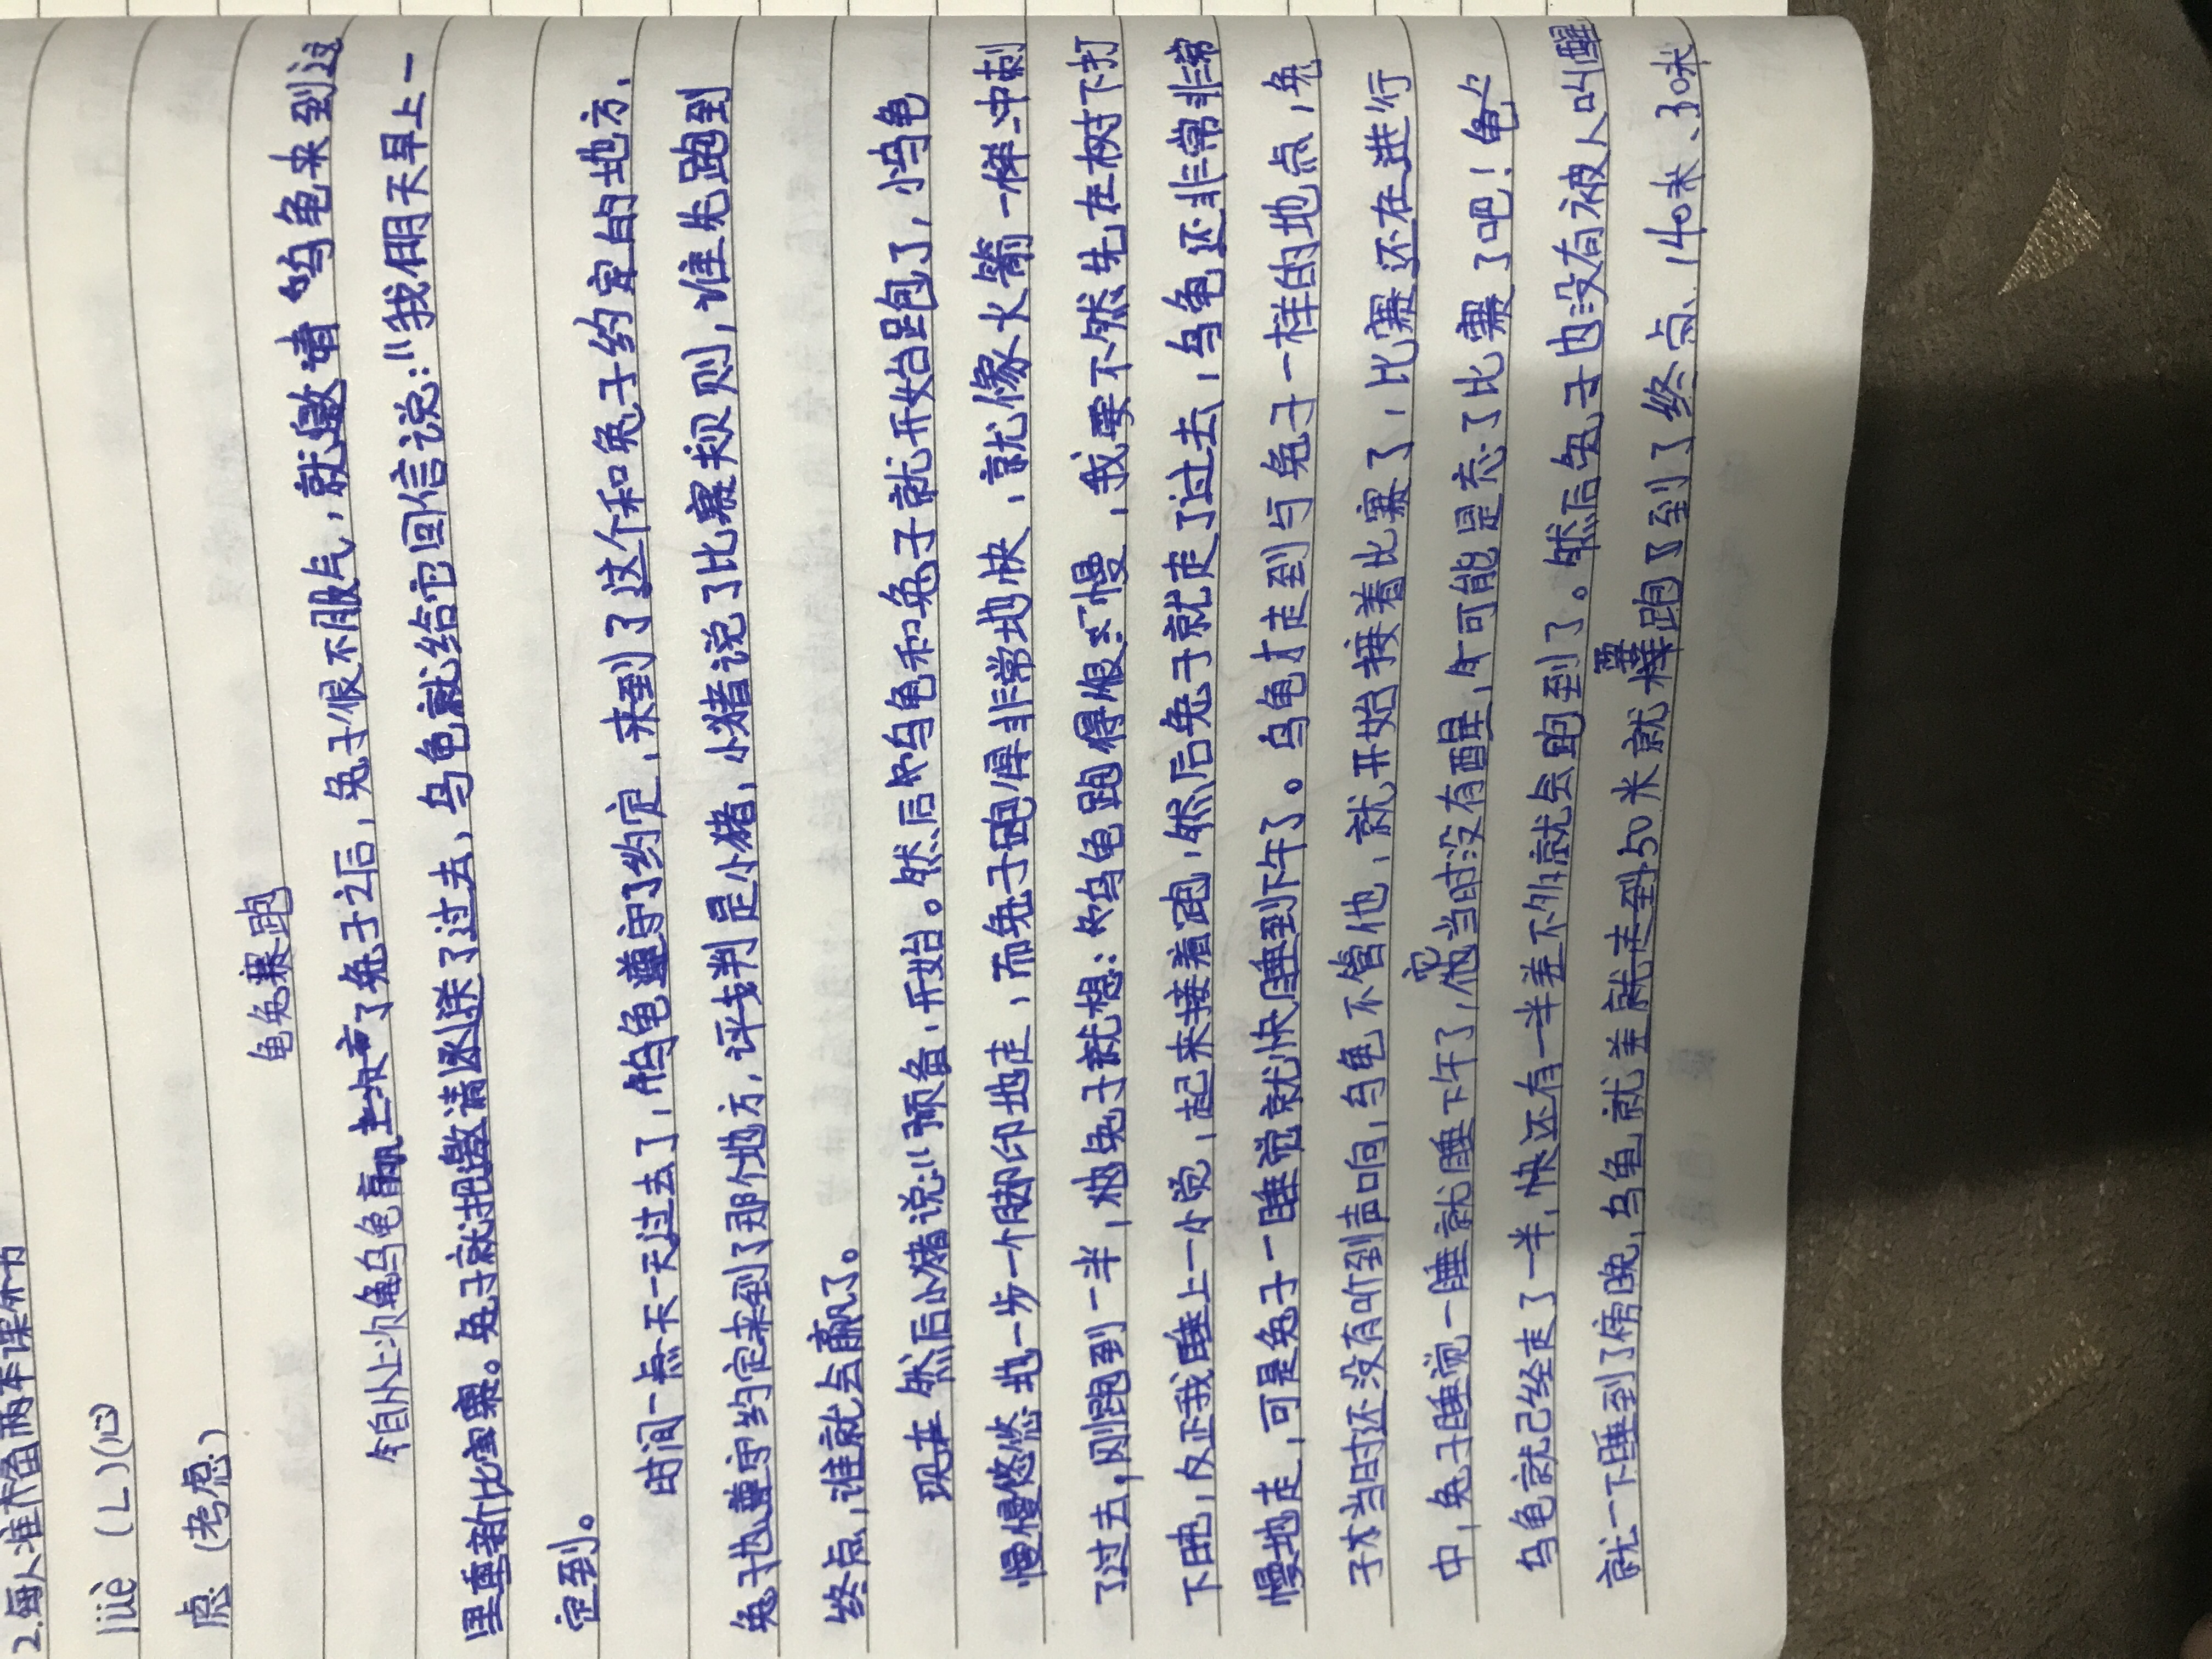 2.每人准备两本课外书
lüè (L)(心)
虑 (考虑)
龟兔赛跑
自从上次乌龟赢了兔子之后,兔子很不服气,就邀请乌龟来到这
里重新比赛。兔子就把邀请送了过去,乌龟就给它回信说:“我明天早上一
定到。
时间一点一点一天过去了,乌龟遵守了约定,来到了这个和兔子约定的地方,
兔子也遵守约定来到了那个地方,评判是小猪,小猪说了比赛规则,谁先跑到
终点,谁就会赢了。
现在然后小猪说:“预备,开始。然后乌龟和兔子就开始跑了,小乌龟
慢慢悠悠地一步一个脚印地走,而兔子跑得非常地快,就像火箭一样冲刺
了过去,刚跑到一半,兔子就想:乌龟跑得很慢,我要不然先在树下打
下吧,反正我睡上一小觉,起来接着跑,然后兔子就走了过去,乌龟还非常非常
慢地走,可是兔子一睡觉就快睡到下午了。乌龟才走到与兔子一样的地点,兔
子当时还没有听到声响,乌龟不管他,就开始接着比赛了,比赛还在进行
中,兔子睡觉一睡就睡下午了,它当时没有醒,可能是忘了比赛了吧!龟
乌龟就已经走了一半,快还有一半差不多就会跑到了。然后兔子也没有被人叫醒
就一下睡到了傍晚,乌龟就差50米就要跑到了终点、40米、30米